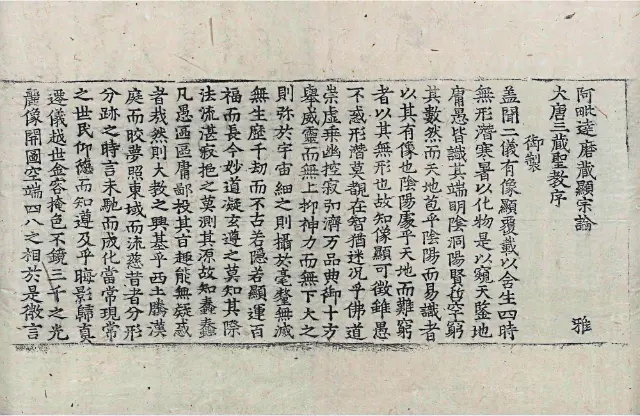 阿毗達磨藏顯宗論 雅
大唐三藏聖教序
御製
盖聞二儀有像顯覆載以含生四時
無形潛寒暑以化物是以窺天鑒地
庸愚皆識其端明陰洞陽賢哲罕窮
其數然而天地苞乎陰陽而易識者
以其有像也陰陽處乎天地而難窮
者以其無形也故知像顯可徵雖愚
不惑形潛莫覩在智猶迷況乎佛道
崇虛乗幽控寂弘濟万品典御十方
舉威靈而無上抑神力而無下大之
則弥於宇宙細之則攝於毫氂無滅
無生歷千劫而不古若隱若顯運百
福而長今妙道凝玄遵之莫知其際
法流湛寂挹之莫測其源故知蠢蠢
凡愚區區庸鄙投其旨趣能無疑惑
者哉然則大教之興基乎西土騰漢
庭而皎夢照東域而流慈昔者分形
分跡之時言未馳而成化當常現常
之世民仰德而知遵及乎晦影歸真
遷儀越世金容掩色不鏡三千之光
麗像開圖空端四八之相於是微言